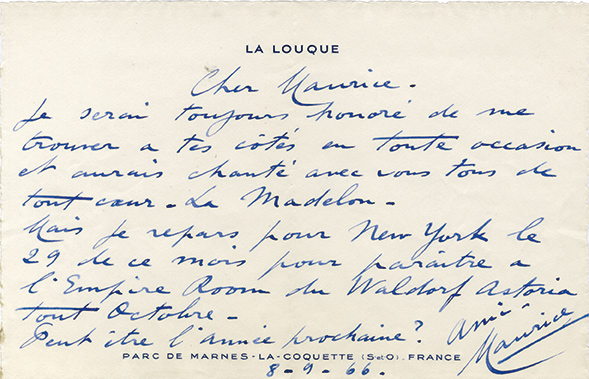 LA LOUQUE
Cher Maurice -
Je serai toujours honoré de me
trouver a tes côtés en toute occasion
et aurais chanté avec vous tous de
tout cœur - La Madelon -
Mais je repars pour New York le
29 de ce mois pour paraître a
l'Empire Room du Waldorf Astoria
tout Octobre -
Peut être l'année prochaine? Ami
Maurice
PARC DE MARNES-LA-COQUETTE (S et O). FRANCE
8-9-66.